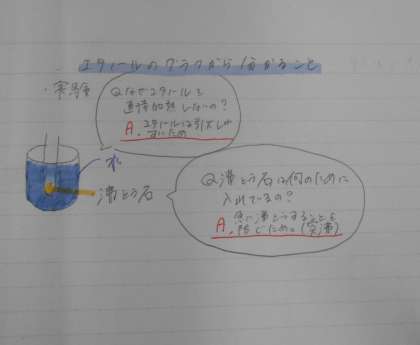 エタノールのグラフから分かること
・実験
Qなぜエタノールを
直接加熱しないの?
A.エタノールは引火しや
すいため
水
沸とう石
Q沸とう石は何のために
入れているの?
A.急に沸とうすることを
防ぐため。(突沸)